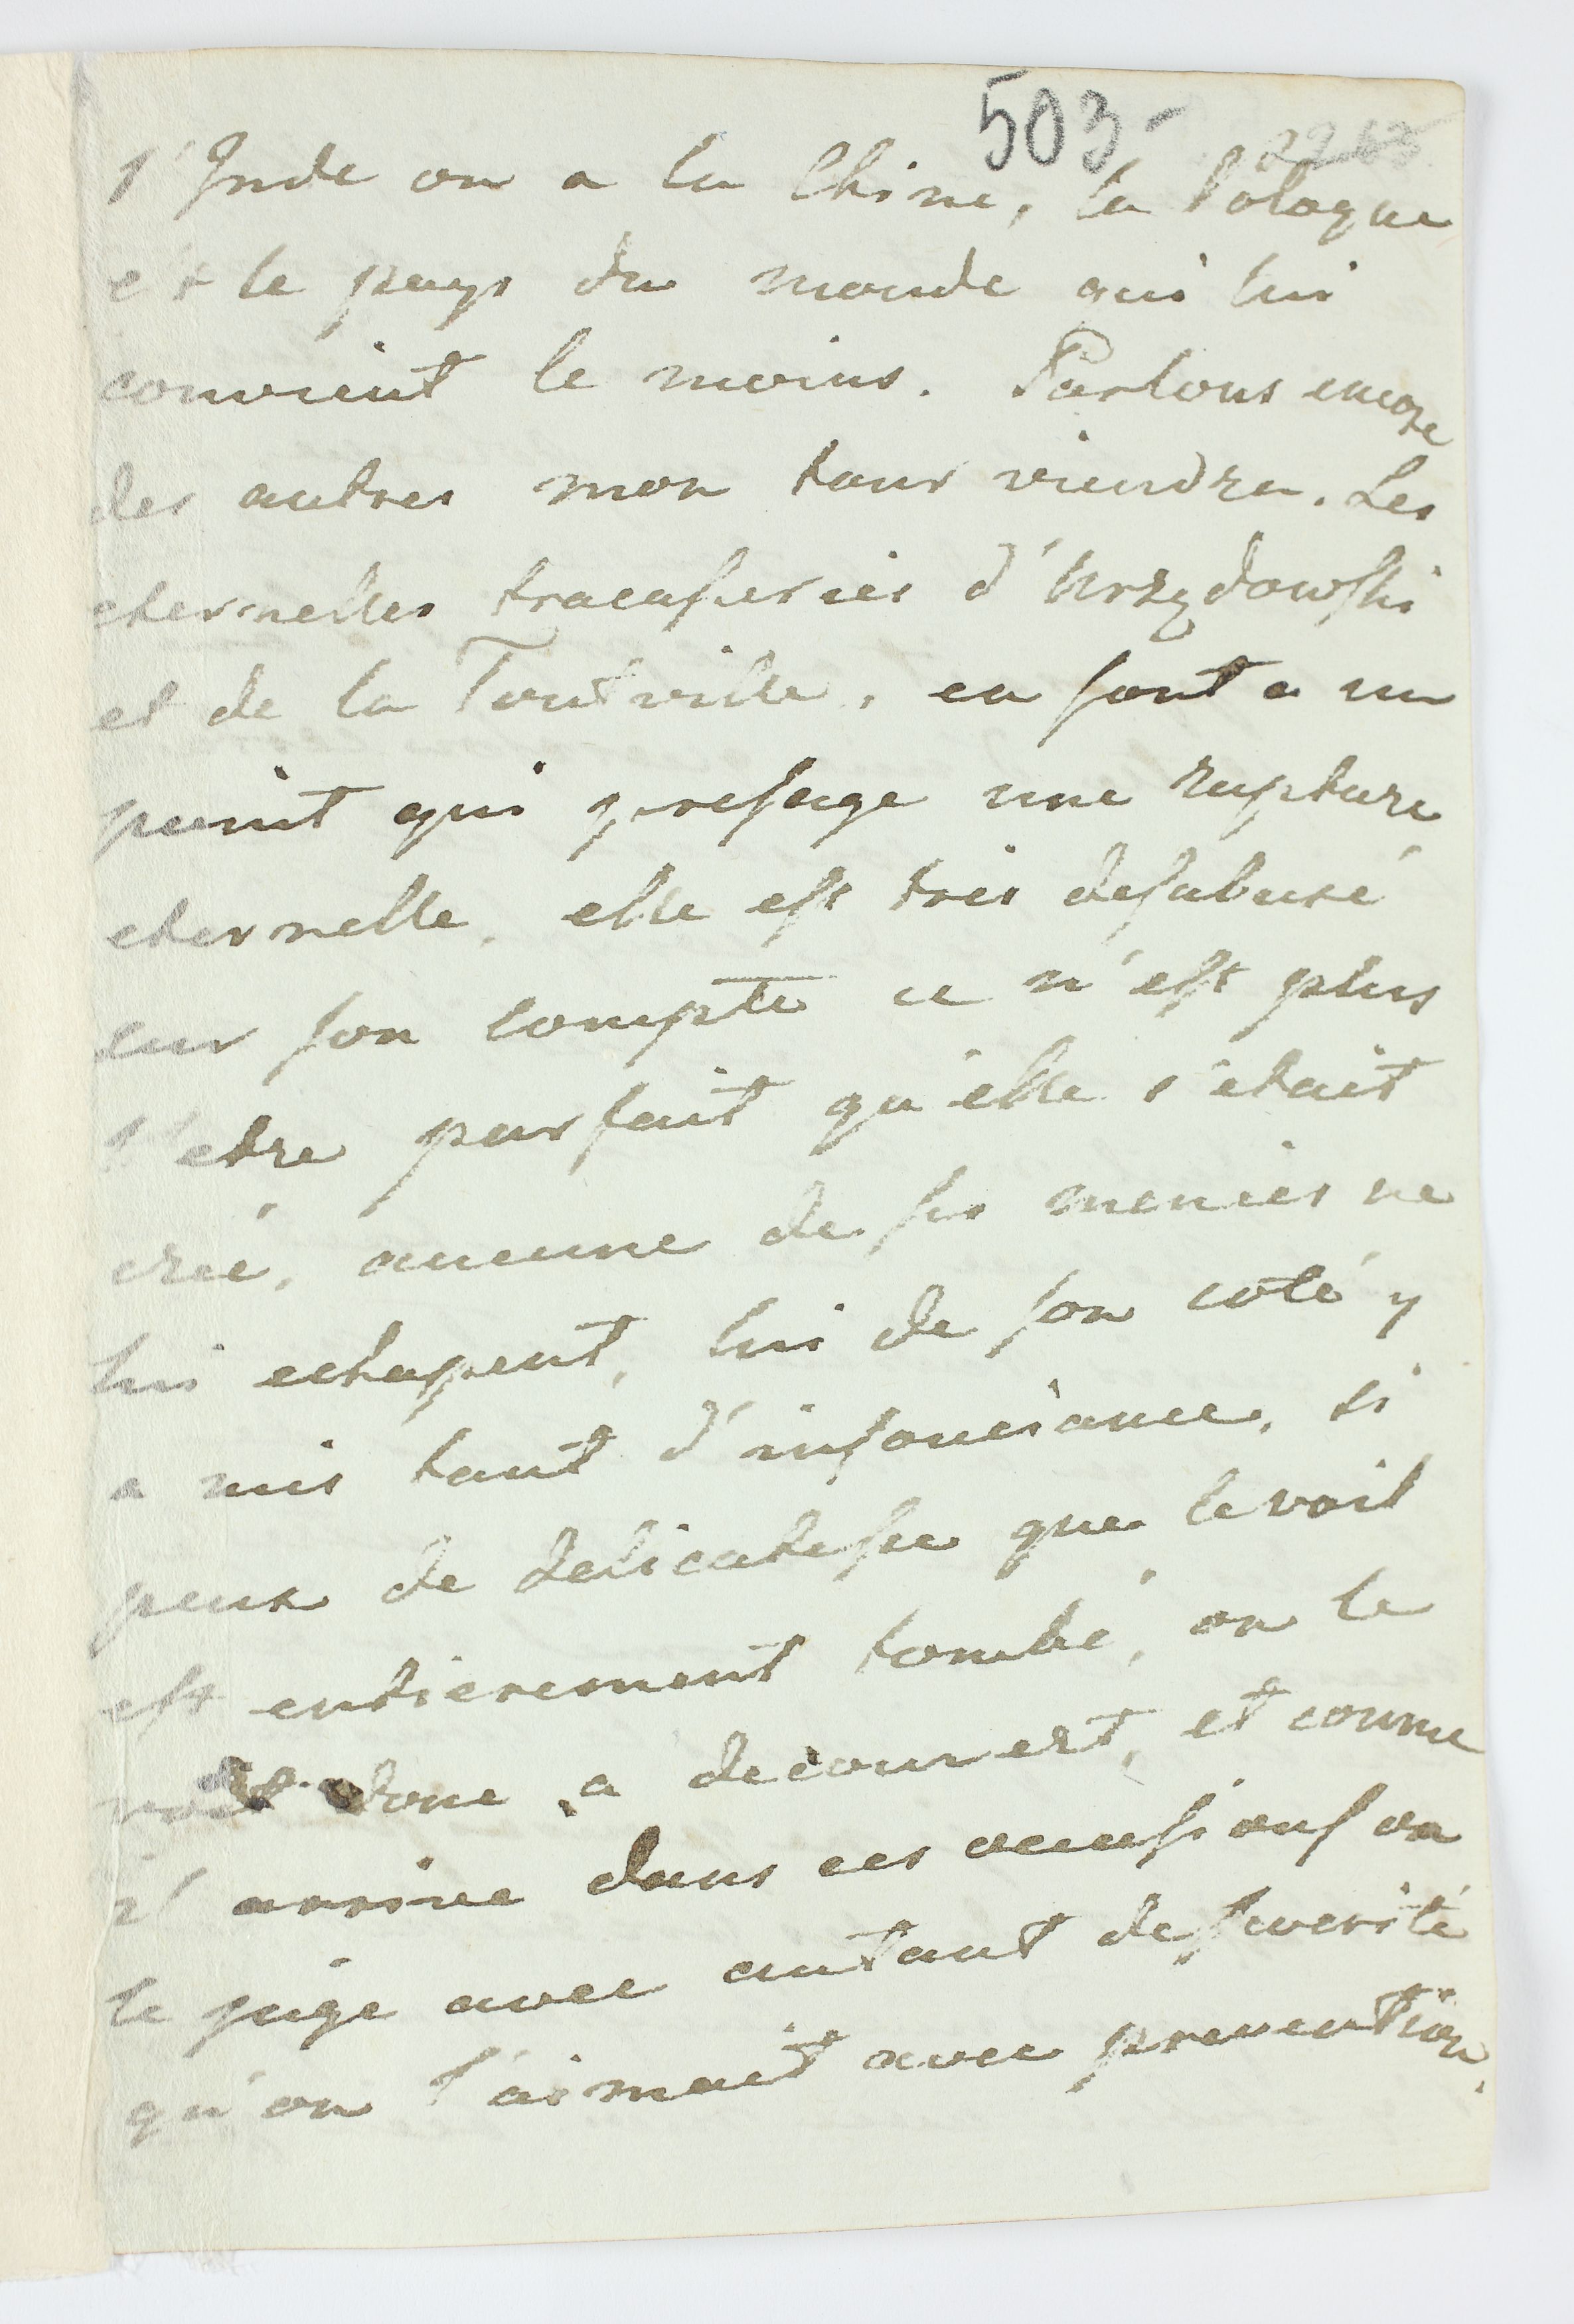 503-
2263
l'Inde ou a la Chine, la Pologne
est le pays du monde qui lui
convient le moins. Parlons encore
des autres mon tour viendra. Les
eternelles tracasseries d'Urzędowski
et de la Toutville, en sont a un
point qui presage une rupture
eternelle, elle est tres desabusé
sur son compte ce n'est plus
l'etre parfait qu'elle s'etait
créé, aucune de ses menées ne
lui echapent, lui de son coté y
a mis tant d'insouciance, si
peux de delicatesse que le voil
est entierement tombé, on le
voit donc a decouvert, et comme
il arrive dans ces occasions on
le juge avec autant de severité
qu'on l'aimait avec prevention.